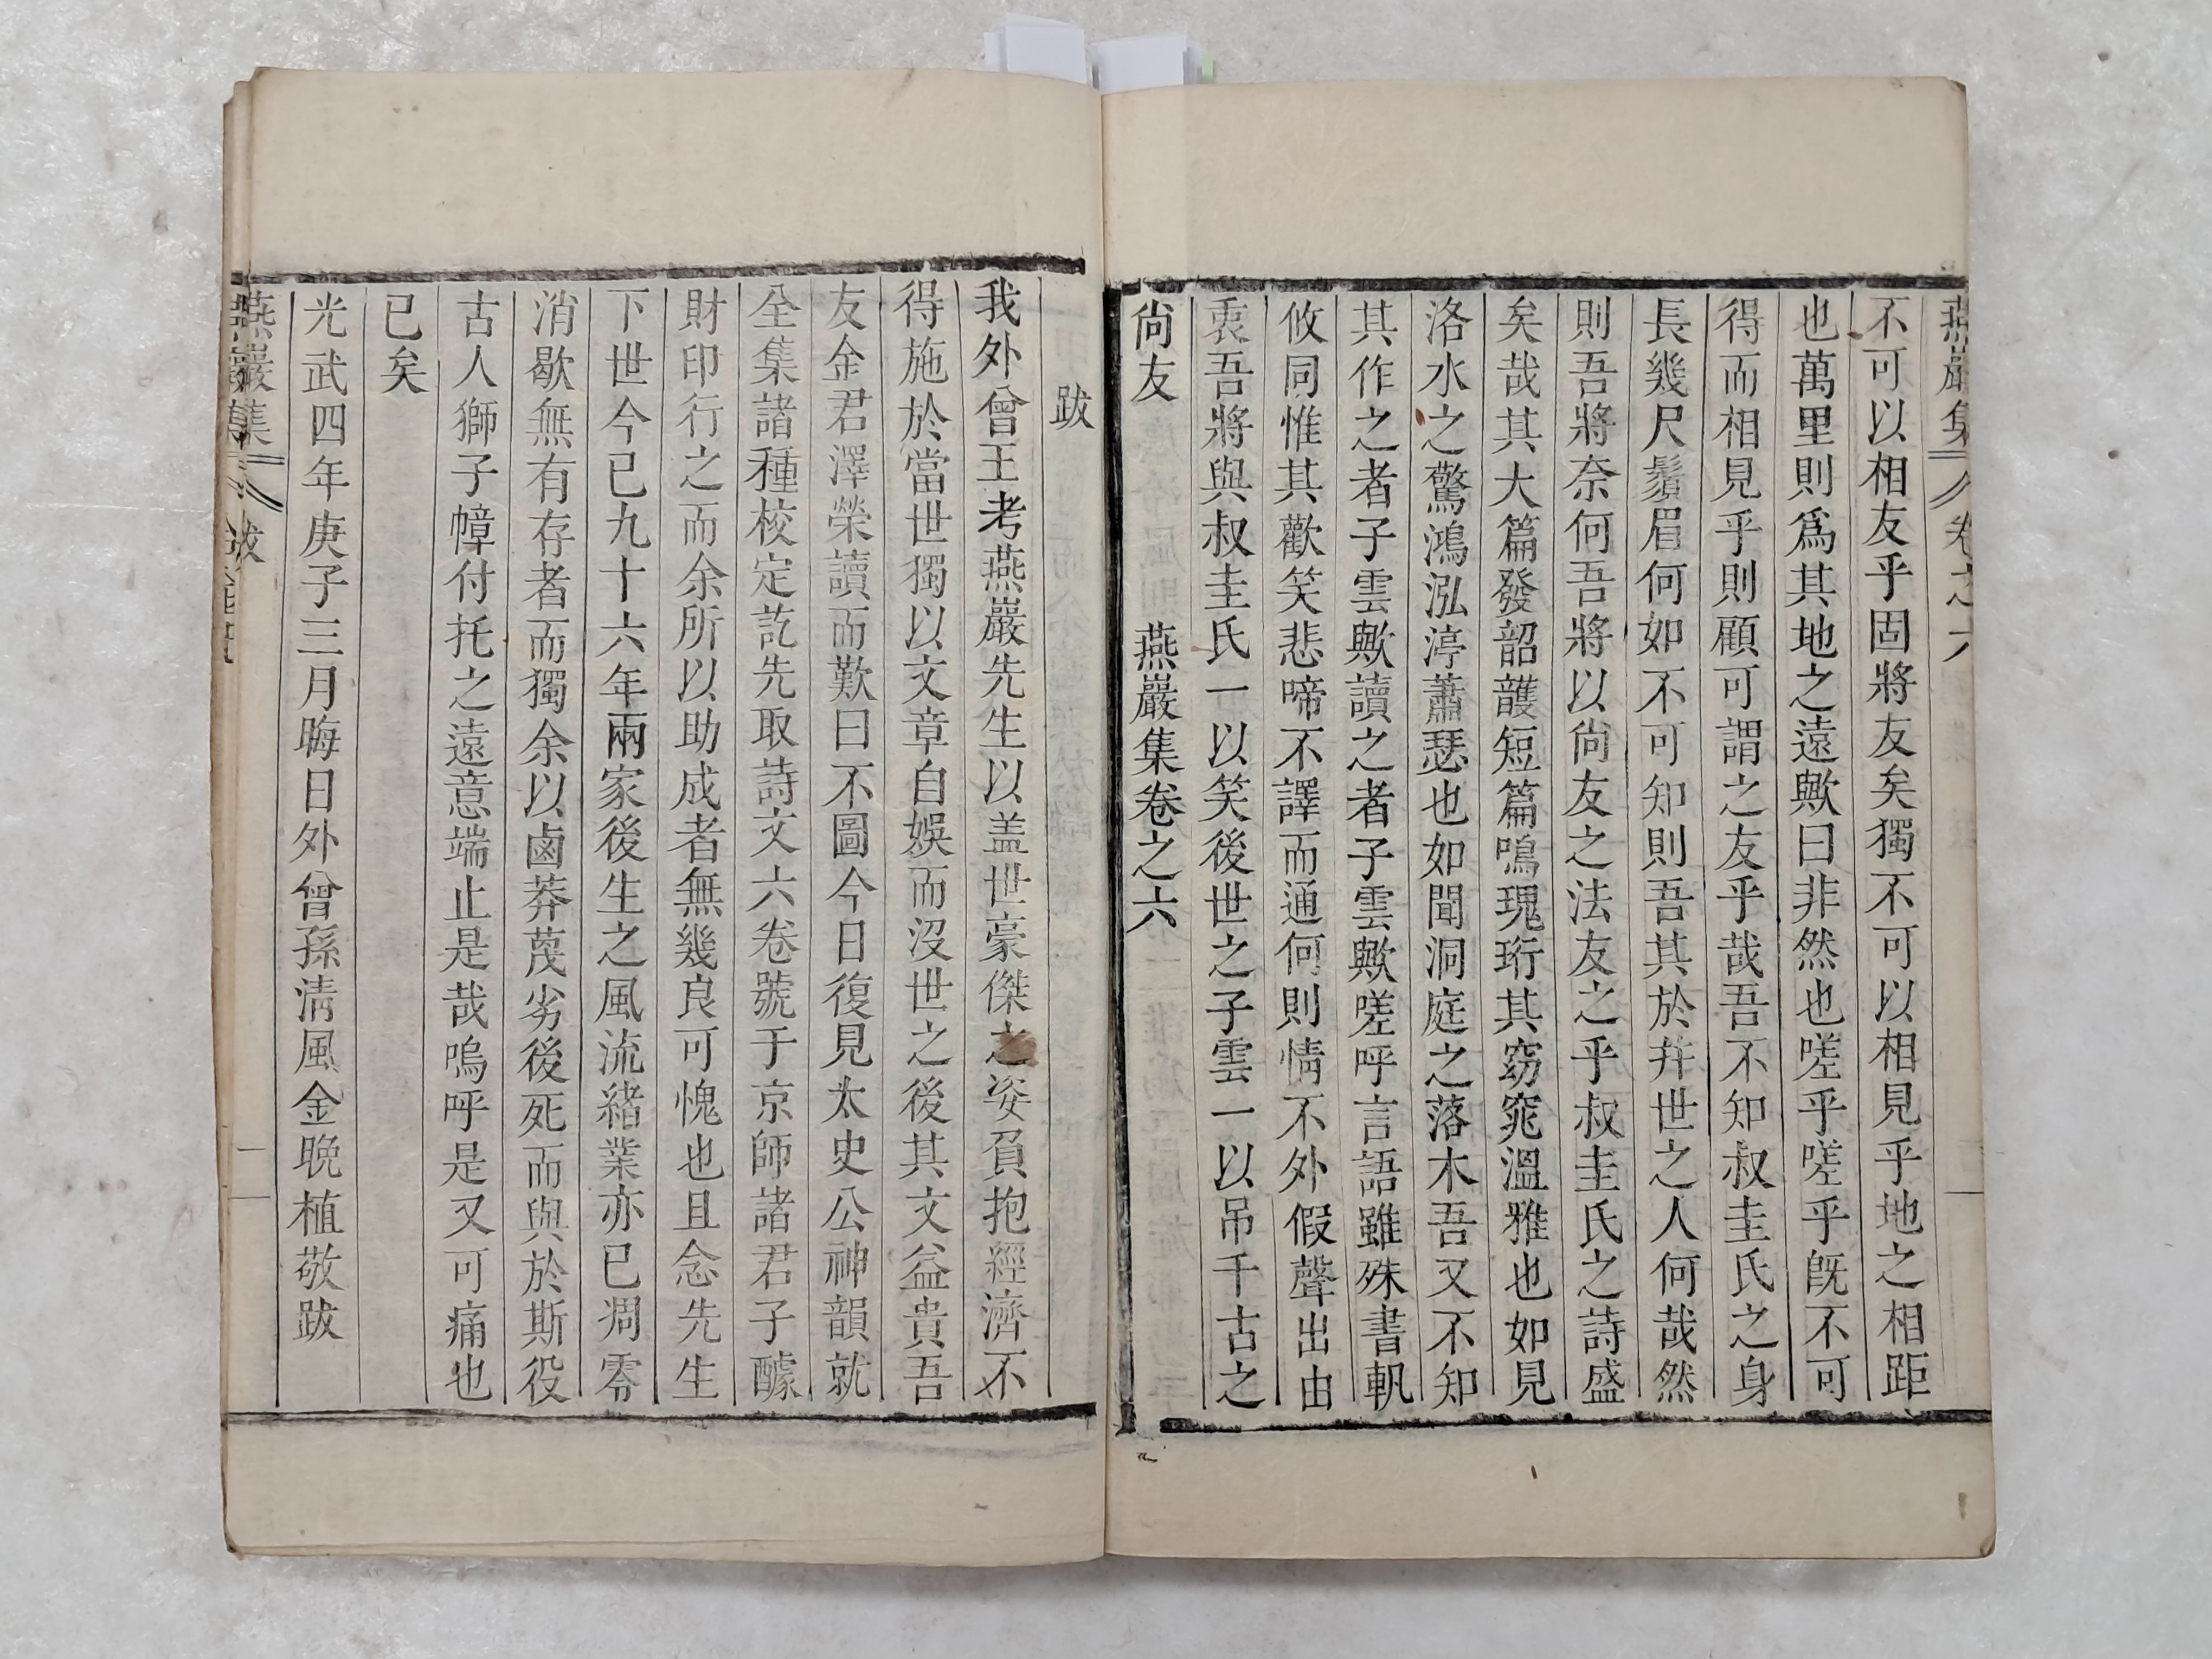 燕巖集 卷之六
不可以相友乎固將友矣獨不可以相見乎地之相距
也萬里則爲其地之遠歟曰非然也嗟乎嗟乎旣不可
得而相見乎則顧可謂之友乎哉吾不知叔圭氏之身
長幾尺鬚眉何如不可知則吾其於幷世之人何哉然
則吾將奈何吾將以尙友之法友之乎叔圭氏之詩盛
矣哉其大篇發韶頀短篇鳴瑰珩其窈窕溫雅也如見
洛水之驚鴻泓渟蕭瑟也如聞洞庭之落木吾又不知
其作之者子雲歟讀之者子雲歟嗟呼言語雖殊書軌
攸同惟其歡笑悲啼不譯而通何則情不外假聲出由
衷吾將與叔圭氏一以笑後世之子雲一以吊千古之
尙友
燕巖集卷之六
跋
我外曾王考燕巖先生以盖世豪傑之姿負抱經濟不
得施於當世獨以文章自娛而沒世之後其文益貴吾
友金君澤榮讀而歎曰不圖今日復見太史公神韻就
全集諸種校定訖先取詩文六卷號于京師諸君子醵
財印行之而余所以助成者無幾良可愧也且念先生
下世今已九十六年兩家後生之風流緖業亦已凋零
消歇無有存者而獨余以鹵莽蔑劣後死而與於斯役
古人獅子幛付托之遠意端止是哉嗚呼是又可痛也
已矣
光武四年庚子三月晦日外曾孫淸風金晚植敬跋
燕巖集 跋 一